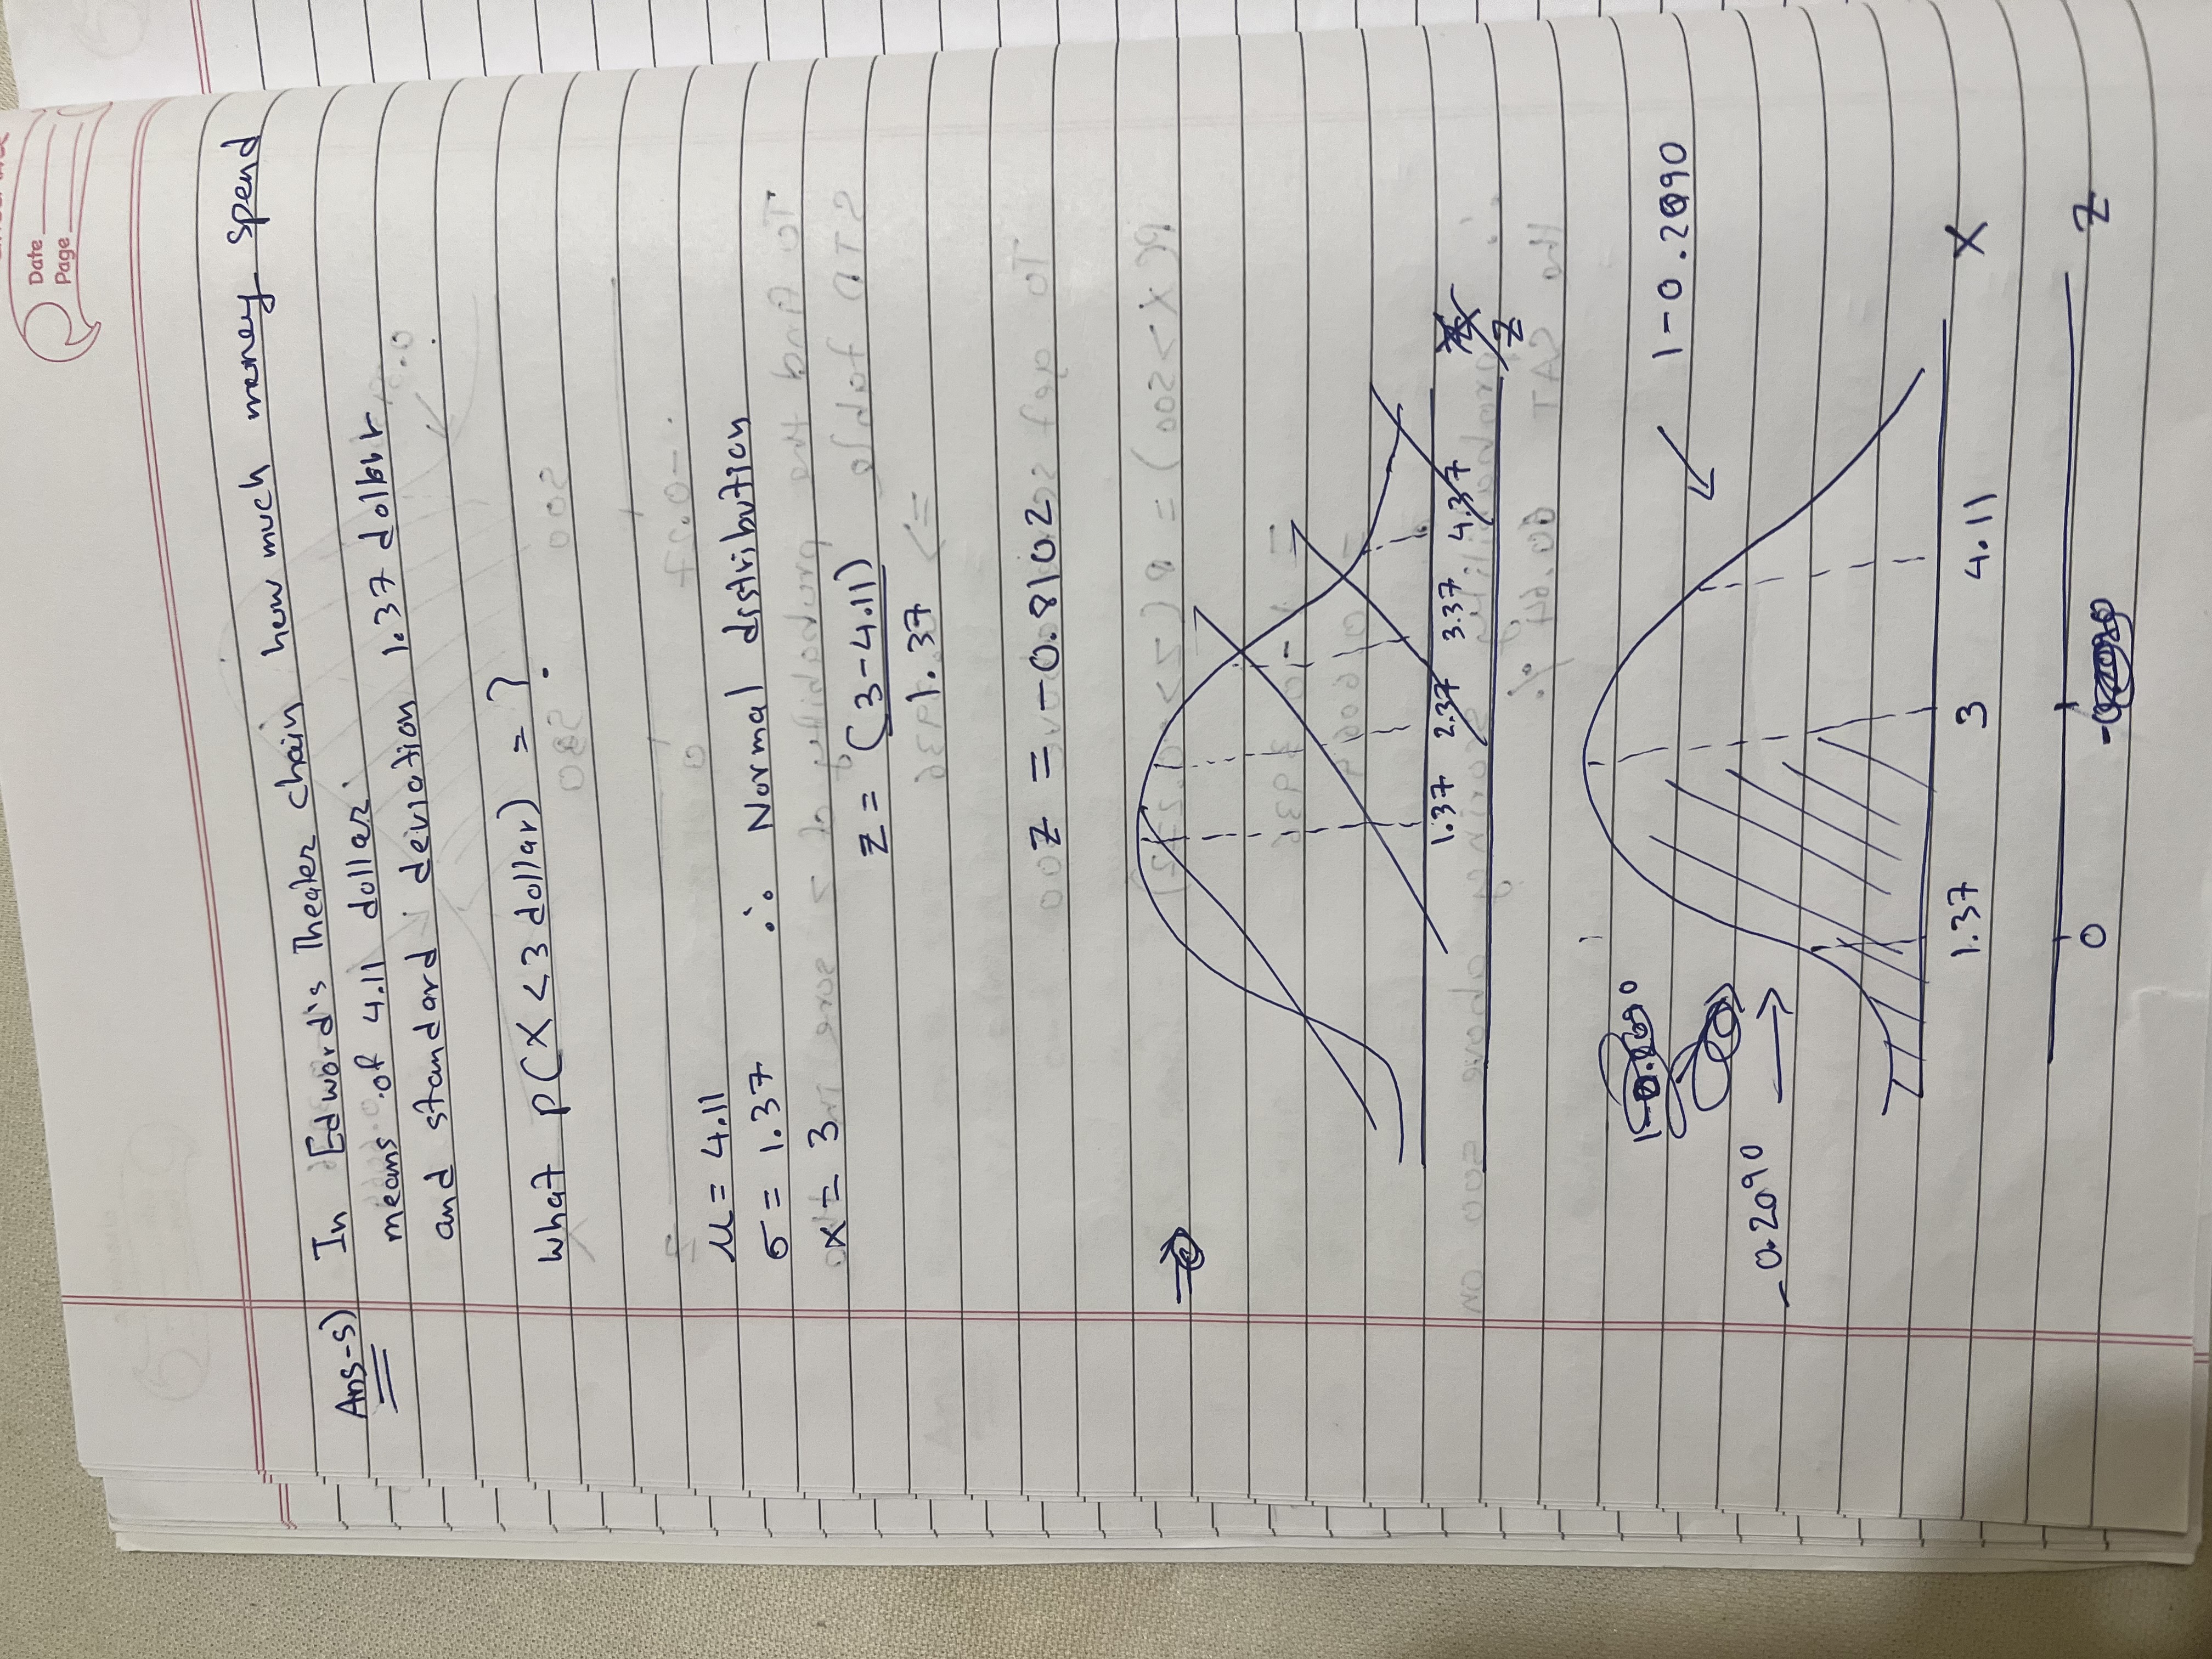 Date
Page
Ans-5) In Edword's Theater chain how much money spend
means of 4.11 dollar.
and standard deviation 1.37 dollar
what p(X < 3 dollar) = ?
μ = 4.11
σ = 1.37 ∴ Normal distribution
x = 3
z = (3-4.11)
1.37
z = -0.8102
1.37 2.37 3.37 4.37
z
1-0.2090
1-0.2090
-0.2090
1.37 3 4.11 X
0 Z